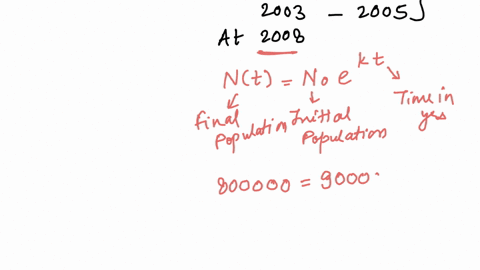 2003 - 2005]
At 2008
N(t) = N₀ e^kt
final Population
Initial Population
Time in yrs
800000 = 9000.